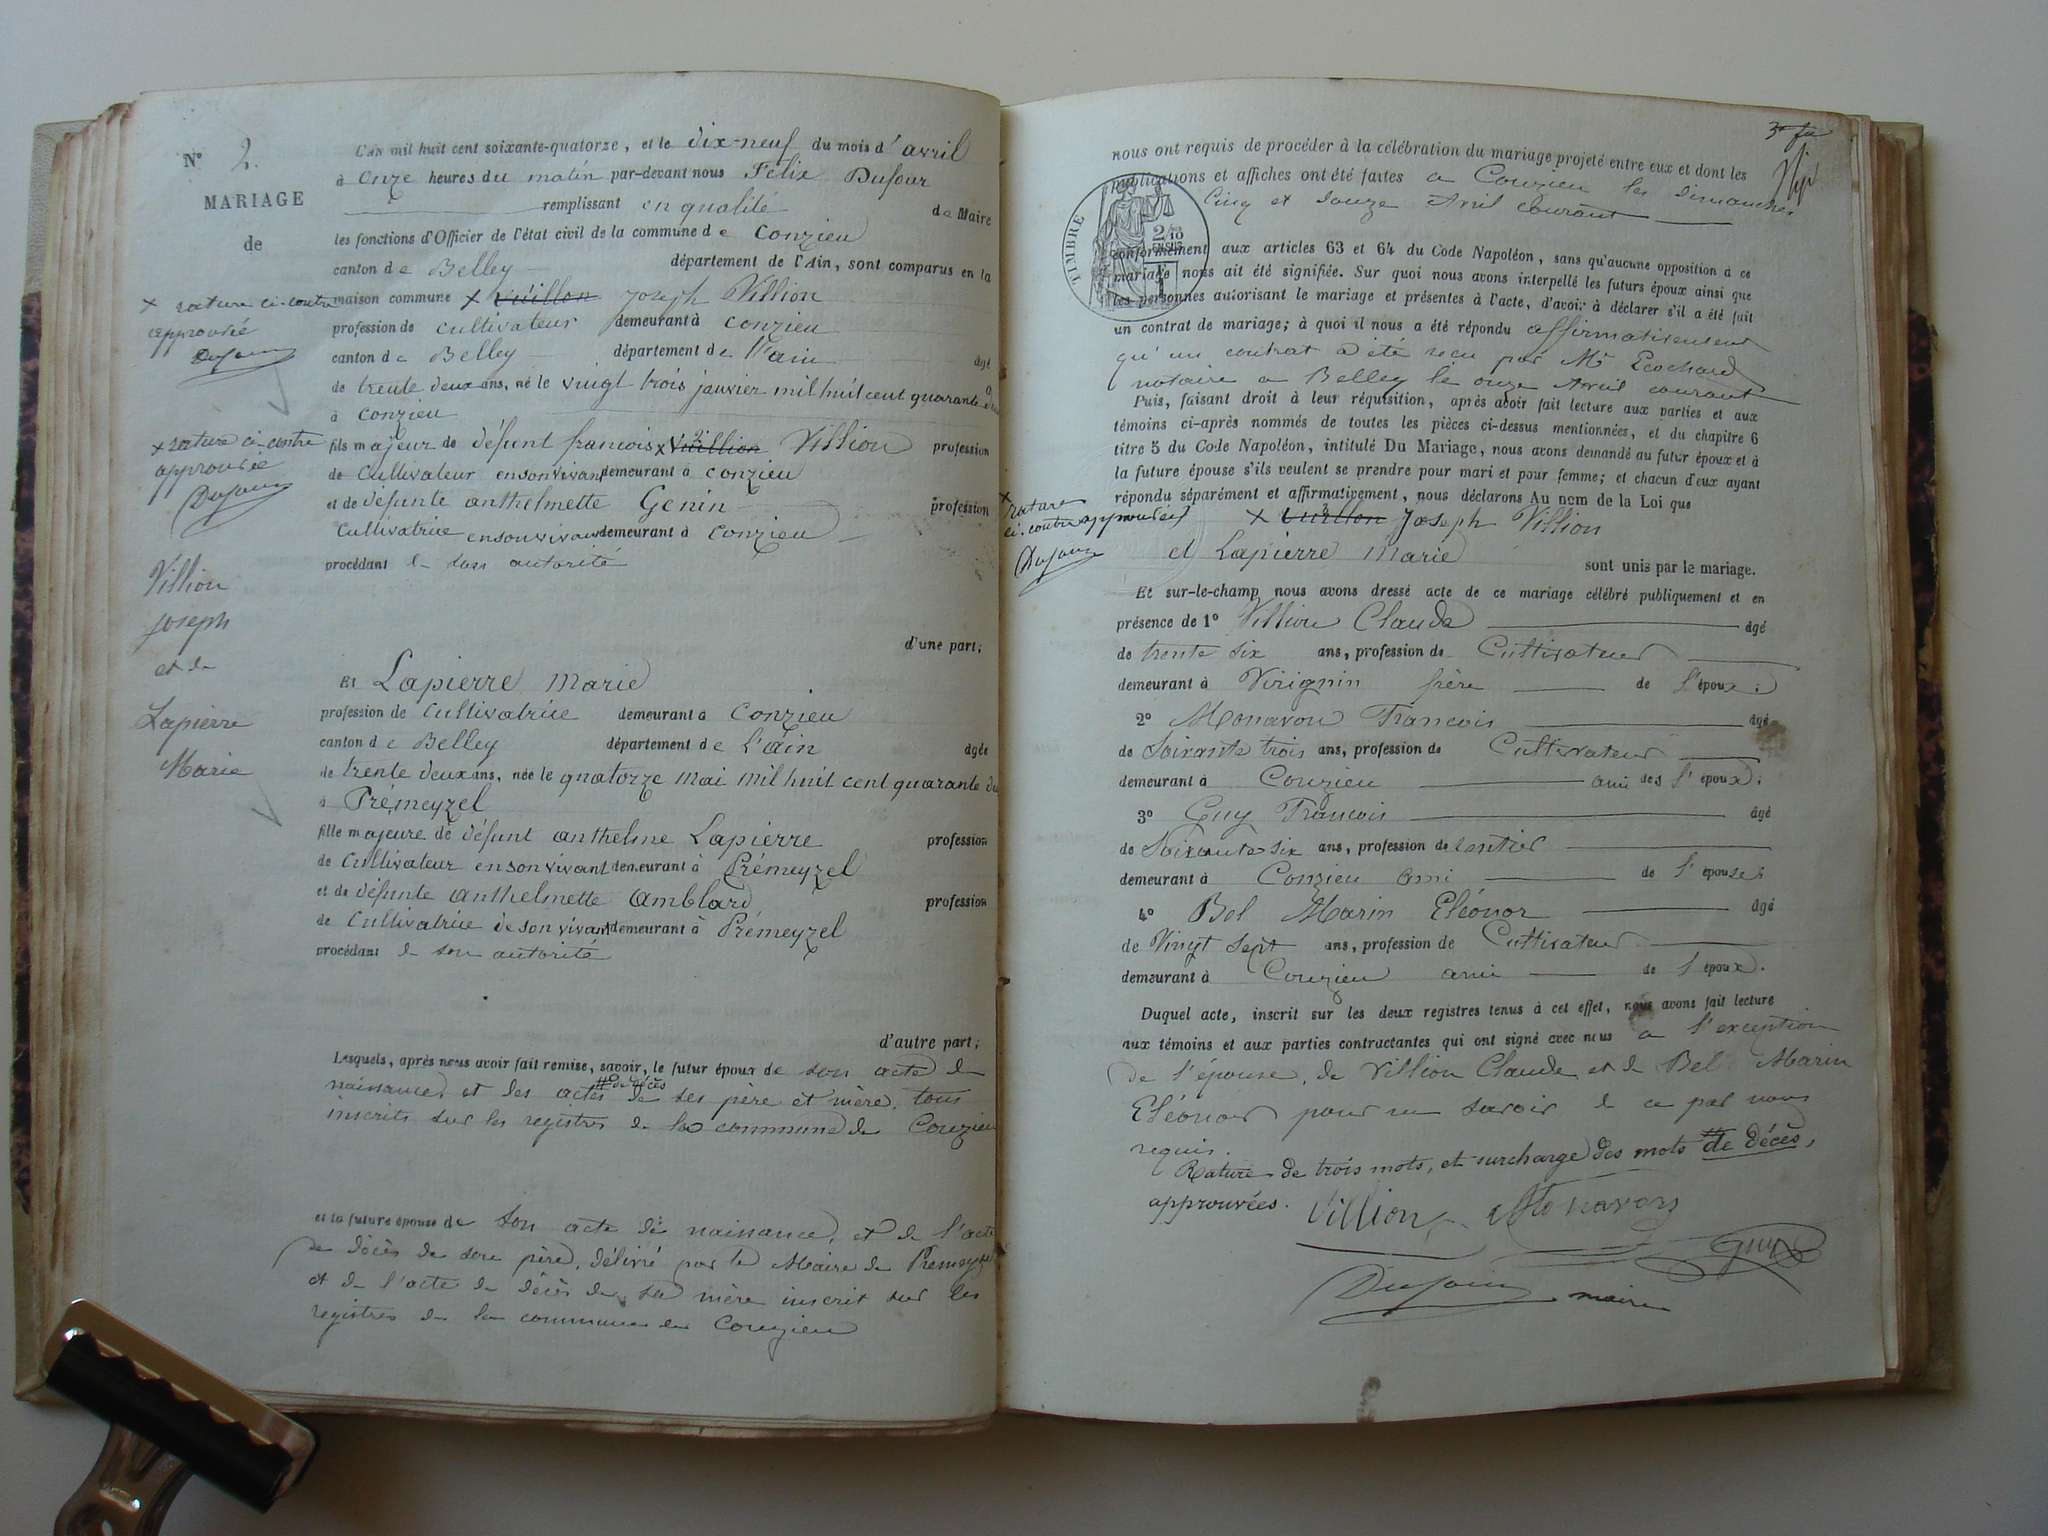 N° 2.
MARIAGE
de
x rature ci-contre
approuvée
Dufour
x rature ci-contre
approuvée
Dufour
Villion
Joseph
et de
Lapierre
Marie
L'An mil huit cent soixante-quatorze, et le dix-neuf du mois d'avril
à onze heures du matin par-devant nous Félix Dufour
remplissant en qualité de Maire
les fonctions d'Officier de l'état civil de la commune de Conzieu
canton de Belley département de l'Ain, sont comparus en la
maison commune x Vuillon Joseph Villion
profession de cultivateur demeurant à Conzieu
canton de Belley département de l'ain âgé
de trente deux ans, né le vingt trois janvier mil huit cent quarante
à Conzieu
fils majeur de défunt françois x Vuillion Villion profession
de cultivateur en son vivant demeurant à Conzieu
et de défunte anthelmette Genin profession
cultivatrice en son vivant demeurant à Conzieu
procédant de son autorité
d'une part;
Et Lapierre Marie
profession de cultivatrice demeurant à Conzieu
canton de Belley département de L'ain âgée
de trente deux ans, née le quatorze mai mil huit cent quarante
à Prémeyzel
fille majeure de défunt anthelme Lapierre profession
de cultivateur en son vivant demeurant à Prémeyzel
et de défunte anthelmette Amblard profession
de cultivatrice de son vivant demeurant à Prémeyzel
procédant de son autorité
d'autre part;
Lesquels, après nous avoir fait remise, savoir, le futur époux de son acte de
naissance, et des actes de décès de ses père et mère, tous
inscrits sur les registres de la commune de Conzieu
et la future épouse de son acte de naissance, et de l'acte
de décès de son père, délivré par le Maire de Premeyzel
et de l'acte de décès de sa mère inscrit sur les
registres de la commune de Conzieu
nous ont requis de procéder à la célébration du mariage projeté entre eux et dont les
publications et affiches ont été faites a Conzieu les dimanches
Cinq et douze Avril courant
TIMBRE
conformément aux articles 63 et 64 du Code Napoléon, sans qu'aucune opposition à ce
mariage nous ait été signifiée. Sur quoi nous avons interpellé les futurs époux ainsi que
les personnes autorisant le mariage et présentes à l'acte, d'avoir à déclarer s'il a été fait
un contrat de mariage; à quoi il nous a été répondu affirmativement
qu'un contrat a été reçu par Me Ecochard
notaire a Belley le onze Avril courant
Puis, faisant droit à leur réquisition, après avoir fait lecture aux parties et aux
témoins ci-après nommés de toutes les pièces ci-dessus mentionnées, et du chapitre 6
titre 5 du Code Napoléon, intitulé Du Mariage, nous avons demandé au futur époux et à
la future épouse s'ils veulent se prendre pour mari et pour femme; et chacun d'eux ayant
répondu séparément et affirmativement, nous déclarons Au nom de la Loi que
x rature
ci-contre approuvée
Dufour
x Vuillon Joseph Villion
et Lapierre Marie sont unis par le mariage.
Et sur-le-champ nous avons dressé acte de ce mariage célébré publiquement et en
présence de 1° Villion Claude âgé
de trente six ans, profession de Cultivateur
demeurant à Virignin frère de l'époux;
2° Monavon François âgé
de Soixante trois ans, profession de Cultivateur
demeurant à Conzieu ami des l'époux;
3° Guy François âgé
de Soixante six ans, profession de rentier
demeurant à Conzieu ami de l'épouse;
4° Bel Marin Eléonor âgé
de Vingt sept ans, profession de Cultivateur
demeurant à Conzieu ami de l'époux.
Duquel acte, inscrit sur les deux registres tenus à cet effet, nous avons fait lecture
aux témoins et aux parties contractantes qui ont signé avec nous a l'exception
de l'épouse, de Villion Claude et de Bel Marin
Eléonor pour ne savoir de ce par nous
requis.
Rature de trois mots, et surcharge des mots de décès,
approuvées. Villion Monavon
Guy
Dufour maire